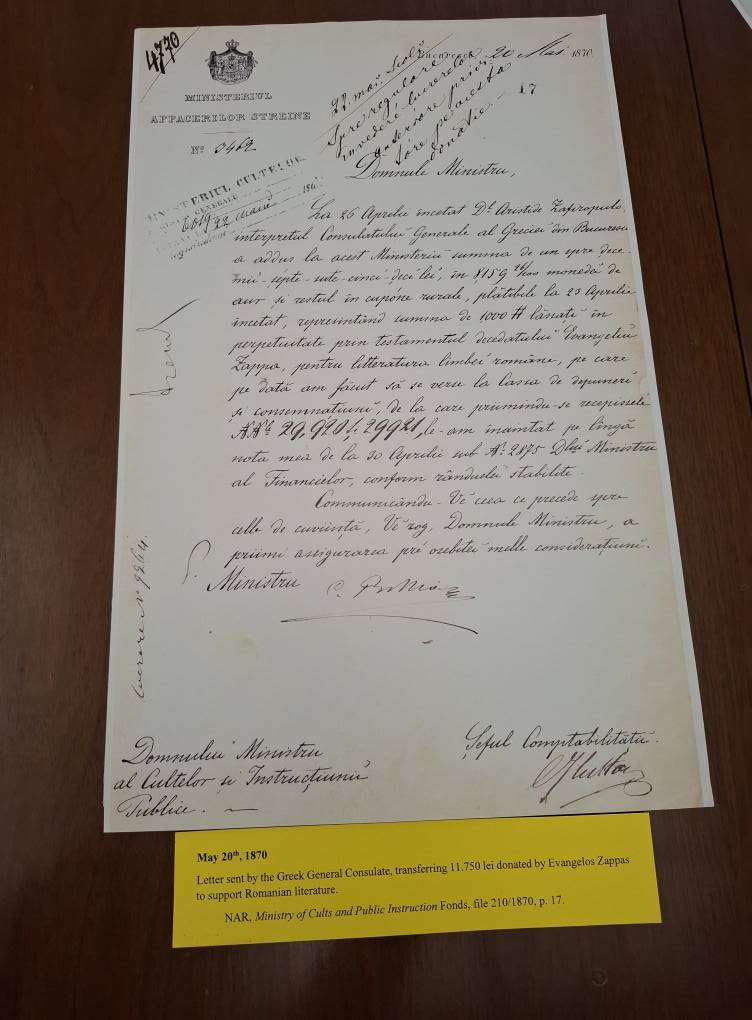 4770
MINISTERIUL
AFFACERILOR STREINE
No 3462
Bucuresci, 20 Mai 1870
22 mai
Spre regulare
lucrerilor
anteriore privi
tóre pe acesta
donatie
17
MINISTERIUL CULTELOR
6019 22 maiu 186
Domnule Ministru,
La 26 Aprilie incetat Dl Aristide Zafiropulo,
interpretul Consulatului Generale al Greciei din Bucuresci
a addus la acest Ministeriu summa de un spre dece
mii septe sute cinci deci lei, in 8159 monedă de
aur și restul in cupóne rurale, plătibile la 23 Aprilie
incetat, represintând summa de 1000 # lăsați in
perpetuitate prin testamentul decedatului Evangeliu
Zappa, pentru litteratura limbei române, pe care
pe dată am făcut să se verse la Cassa de depuneri
și consemnațiuni, de la care priimindu-se recepissele
NNle 29,920 și 29921, le-am inaintat pe lîngă
nota mea de la 30 Aprilie sub No 2875 Dlui Ministru
al Financielor, conform rânduelei stabilite.
Communicându-Vĕ ceea ce precede spre
celle de cuviintă, Vĕ rog, Domnule Ministru, a
priimi assigurarea pré osebitei melle considerațiuni.
Ministru
Lucrare No 9264
Domnului Ministru
al Cultelor și Instrucțiunii
Publice.
Șeful Comptabilitătii.
May 20th, 1870
Letter sent by the Greek General Consulate, transferring 11.750 lei donated by Evangelos Zappas
to support Romanian literature.
NAR, Ministry of Cults and Public Instruction Fonds, file 210/1870, p. 17.